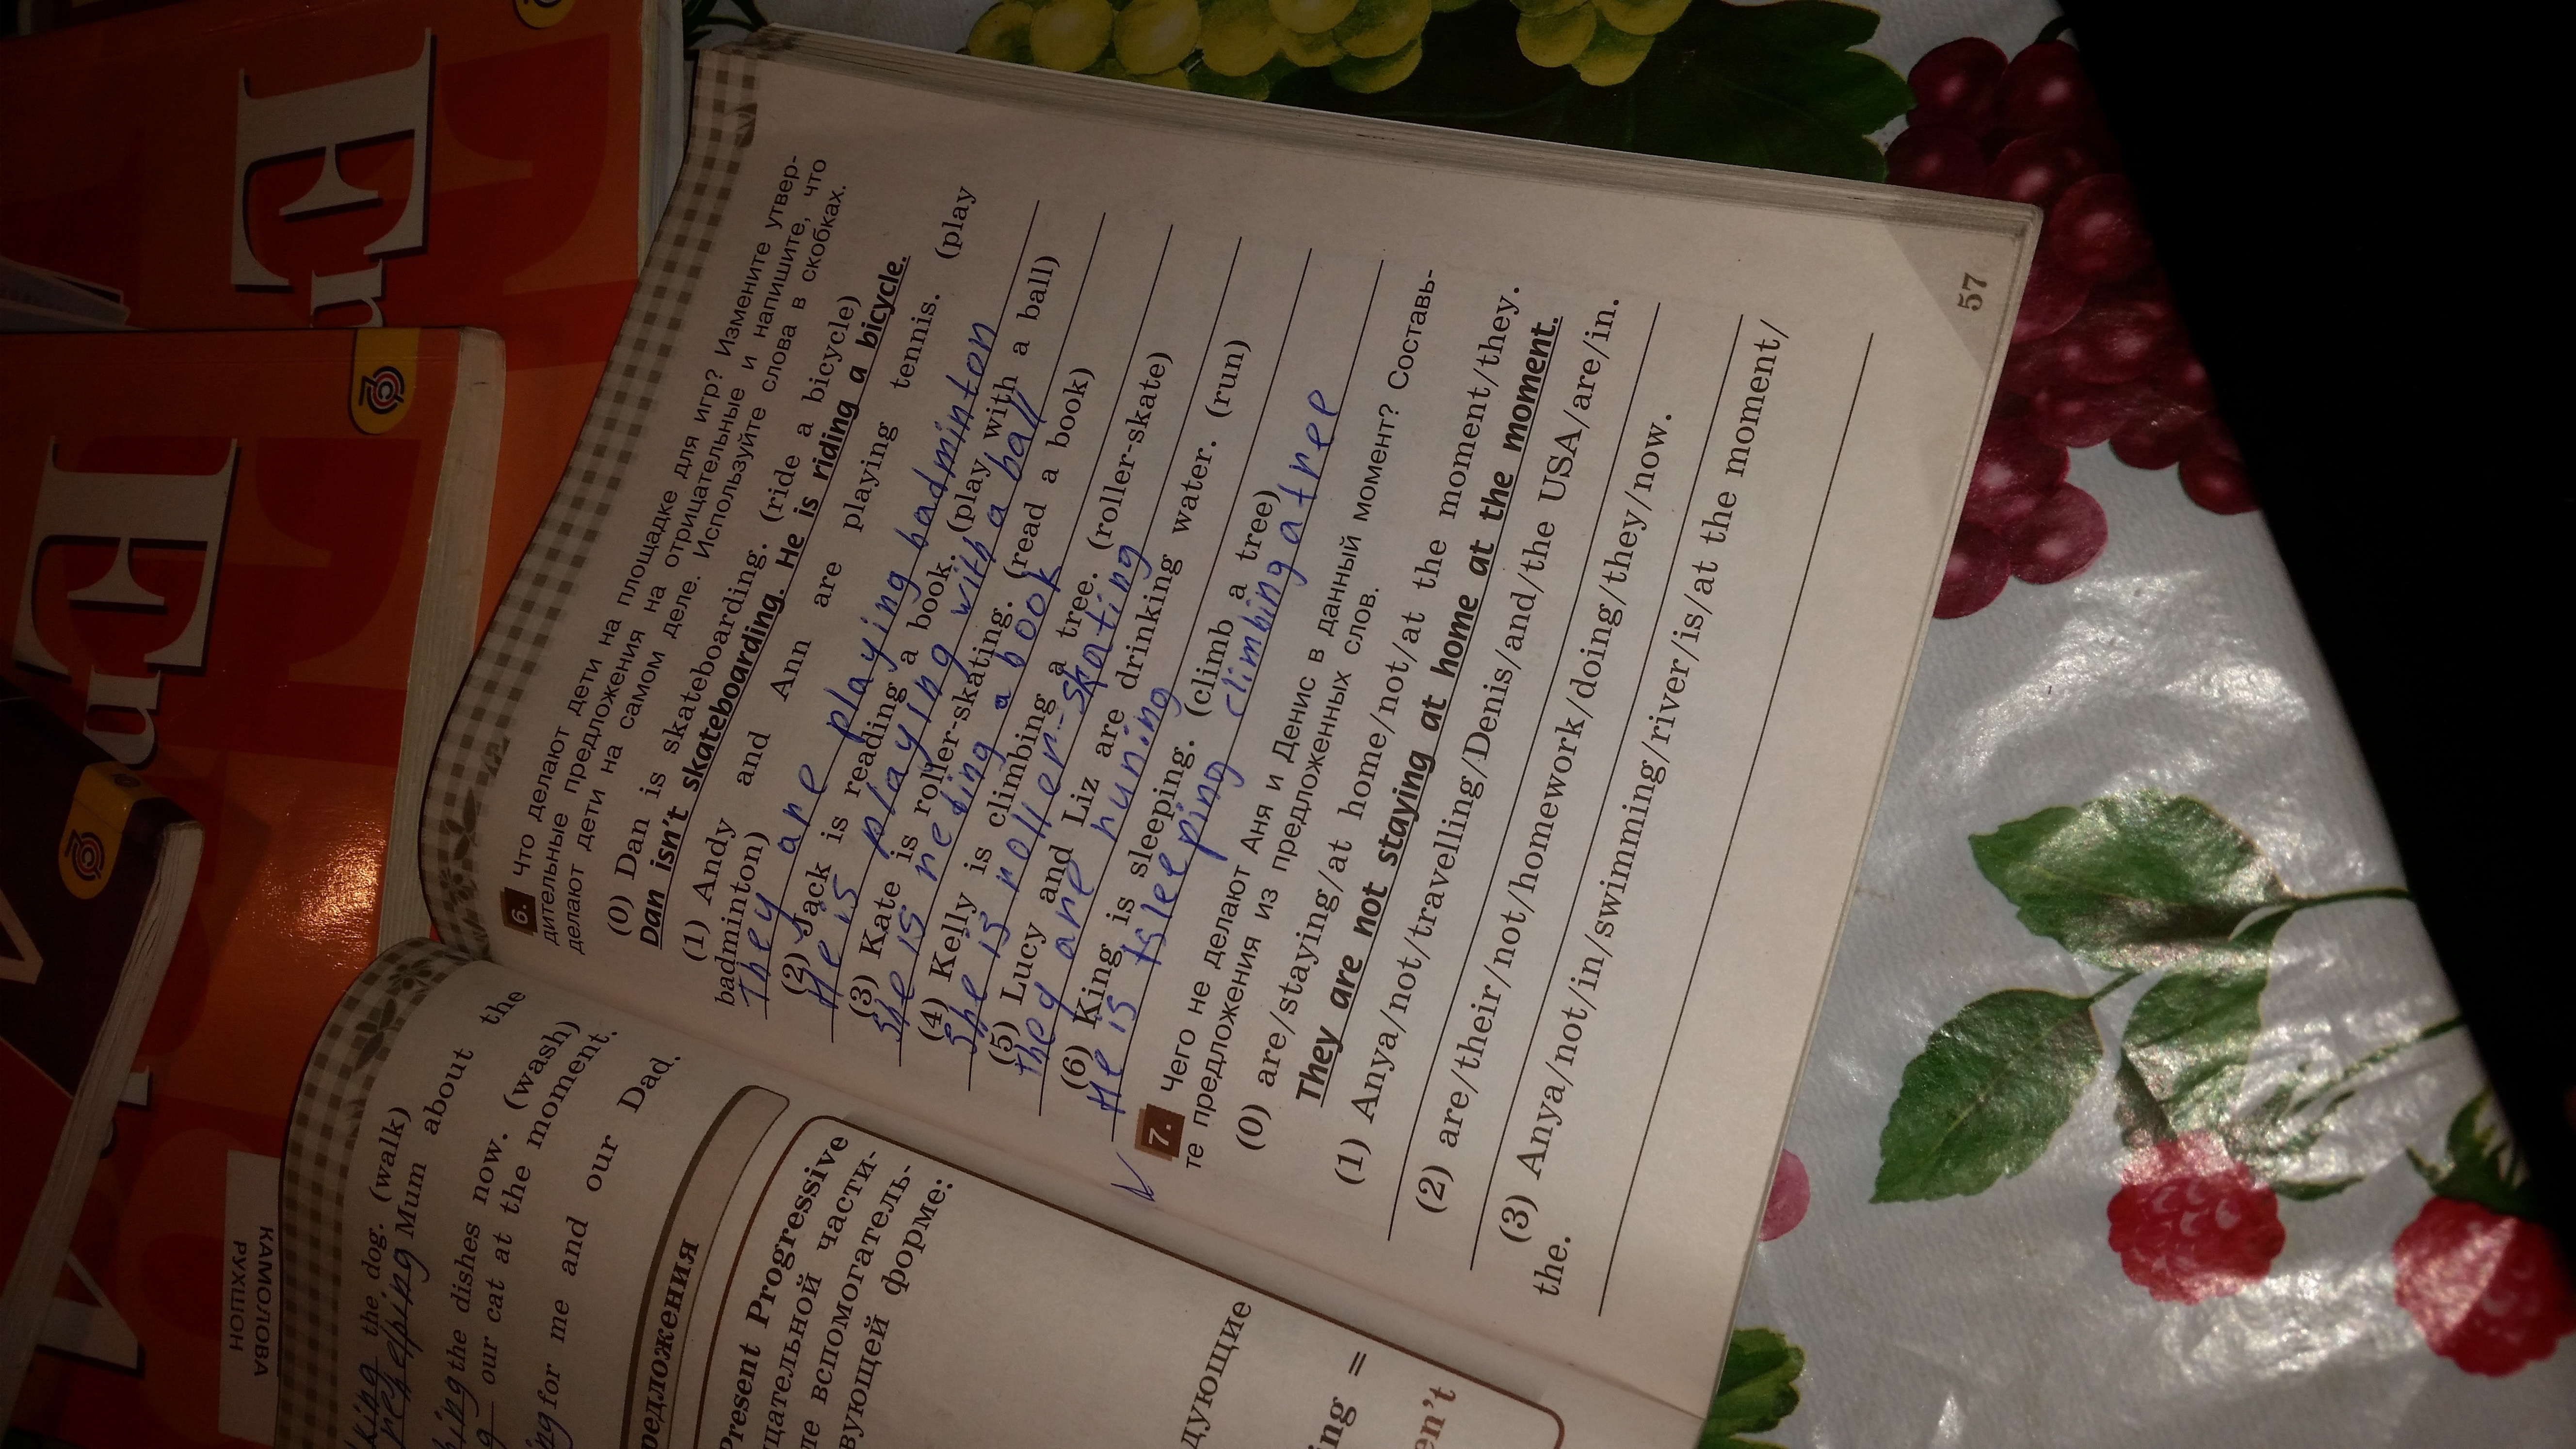 En
En
КАМОЛОВА
РУХШОН
the dog. (walk)
helping Mum about the
the dishes now. (wash)
our cat at the moment.
for me and our Dad.
Present Progressive
вующей форме:
6. Что делают дети на площадке для игр? Измените утвер-
дительные предложения на отрицательные и напишите, что
делают дети на самом деле. Используйте слова в скобках.
(0) Dan is skateboarding. (ride a bicycle)
Dan isn't skateboarding. He is riding a bicycle.
(1) Andy and Ann are playing tennis. (play
badminton)
They are playing badminton
(2) Jack is reading a book. (play with a ball)
He is playing with a ball
(3) Kate is roller-skating. (read a book)
She is reding a book
(4) Kelly is climbing a tree. (roller-skate)
She is roller-skating
(5) Lucy and Liz are drinking water. (run)
they are runing
(6) King is sleeping. (climb a tree)
He is climbing a tree
7. Чего не делают Аня и Денис в данный момент? Составь-
те предложения из предложенных слов.
(0) are/staying/at home/not/at the moment/they.
They are not staying at home at the moment.
(1) Anya/not/travelling/Denis/and/the USA/are/in.
(2) are/their/not/homework/doing/they/now.
(3) Anya/not/in/swimming/river/is/at the moment/
the.
57